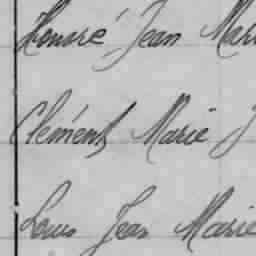 Honoré Jean Mari
Clément Marie J
Louis Jean Marie